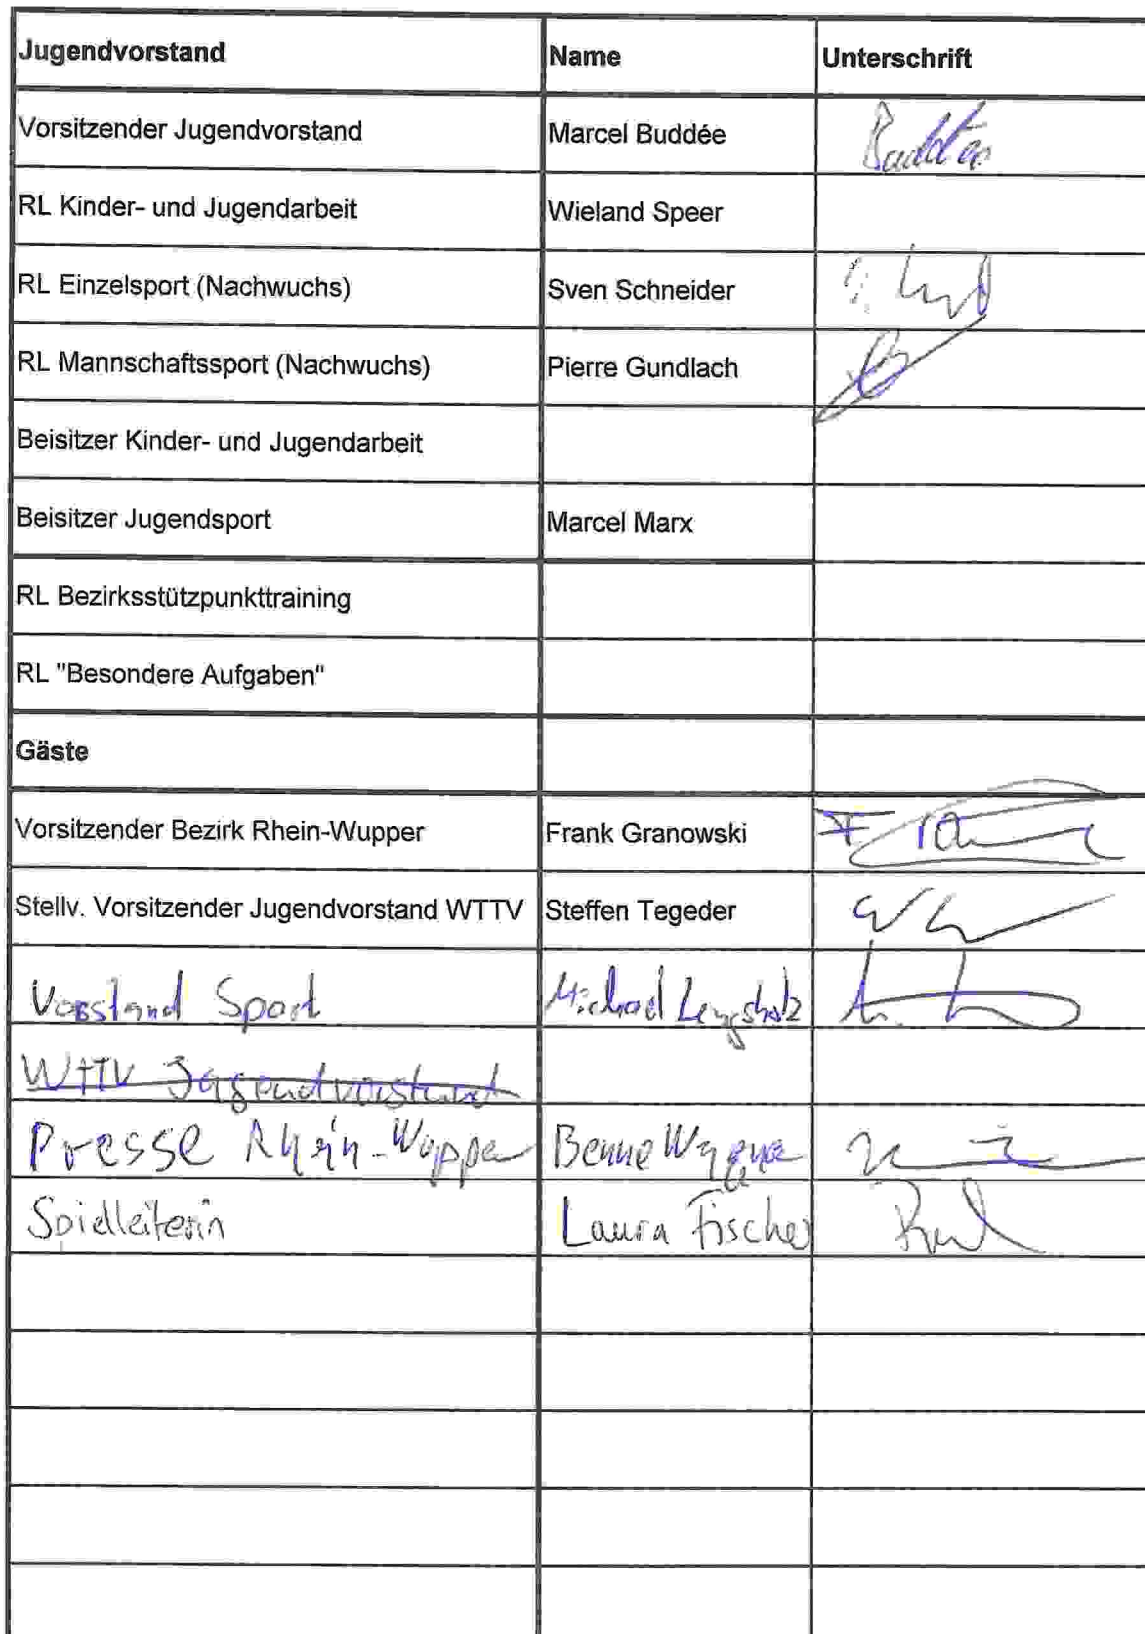 Jugendvorstand Name Unterschrift
Vorsitzender Jugendvorstand Marcel Buddée Buddée
RL Kinder- und Jugendarbeit Wieland Speer
RL Einzelsport (Nachwuchs) Sven Schneider
RL Mannschaftssport (Nachwuchs) Pierre Gundlach
Beisitzer Kinder- und Jugendarbeit
Beisitzer Jugendsport Marcel Marx
RL Bezirksstützpunkttraining
RL "Besondere Aufgaben"
Gäste
Vorsitzender Bezirk Rhein-Wupper Frank Granowski
Stellv. Vorsitzender Jugendvorstand WTTV Steffen Tegeder
Vorstand Sport Michael
WTTV Jugendvorstand
Presse Rhein-Wupper
Spielleiterin Laura Fischer